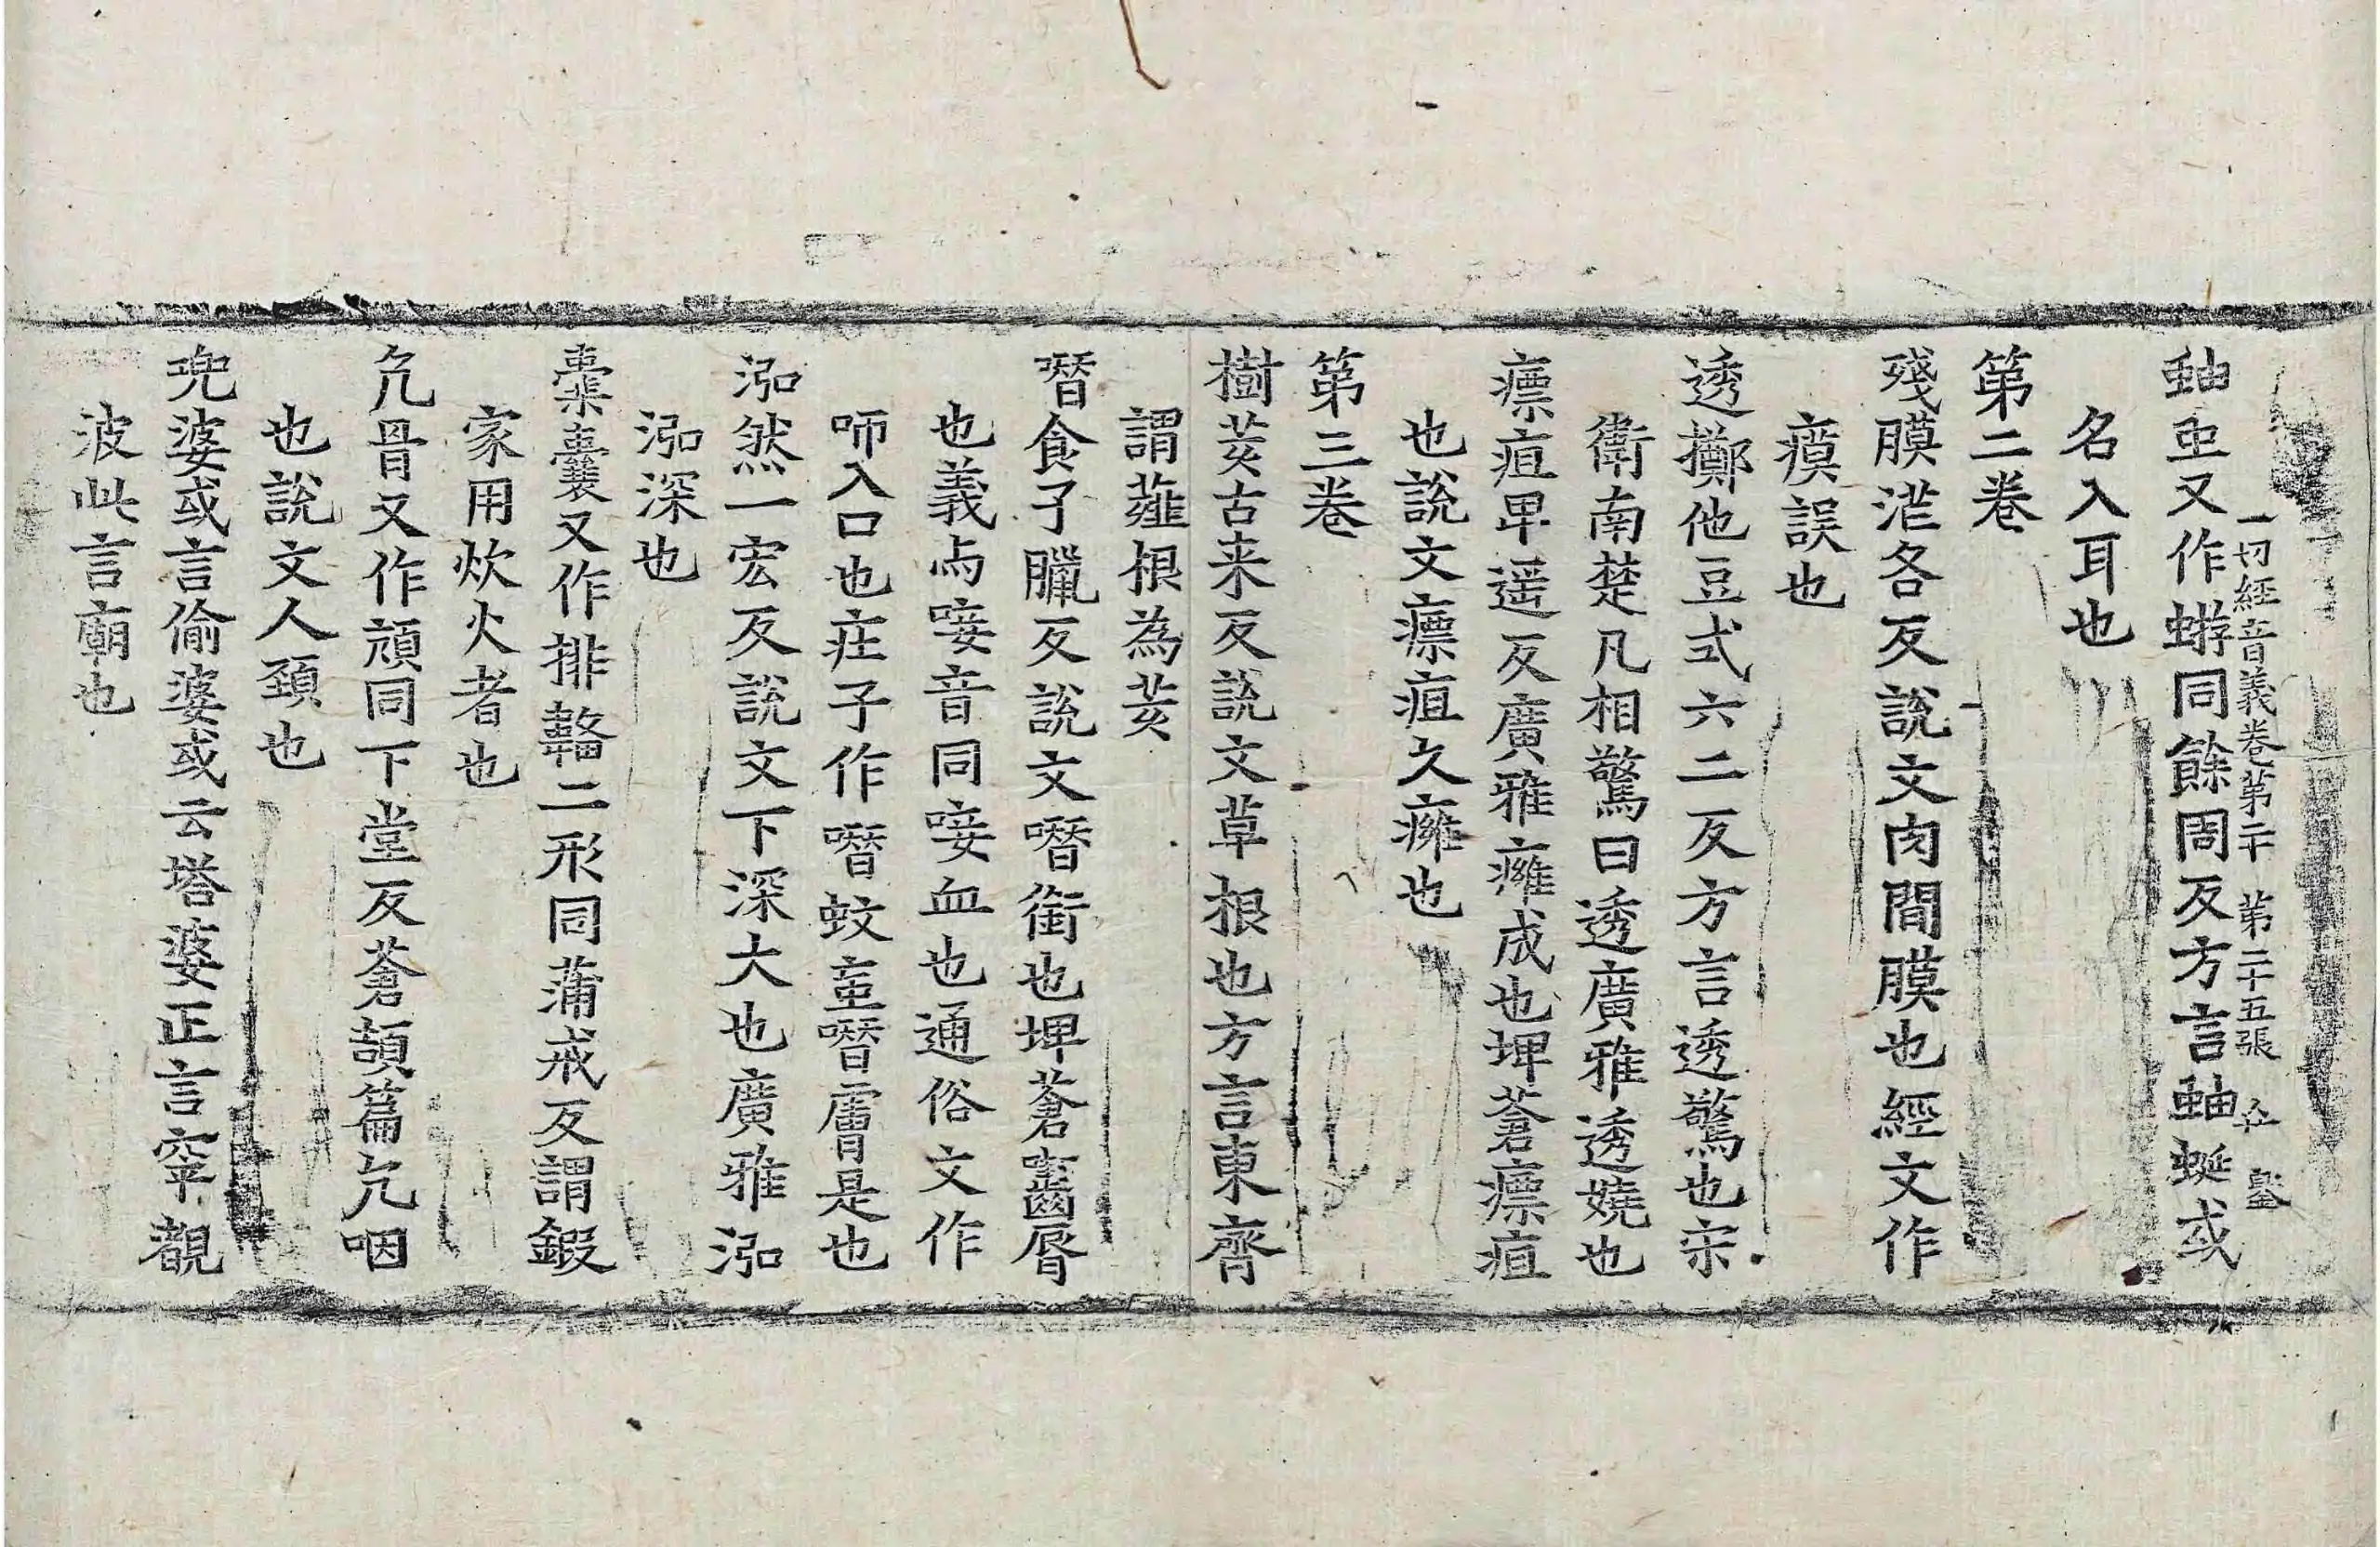 一切經音義卷第二十　第二十五張　
蚰䖝又作蝣同餘周反方言蚰蜒或
名入耳也
第二卷
殘膜茫各反說文肉間膜也經文作
瘼誤也
透擲他豆式六二反方言透驚也宋
衛南楚凡相驚曰透廣雅透嬈也
瘭疽卑遥反廣雅癰成也埤蒼瘭疽
也說文瘭疽久癰也
第三卷
樹荄古来反說文草根也方言東齊
謂薤根為荄
噆食子臘反說文噆銜也埤蒼齧脣
也義与唼音同唼血也通俗文作
咂入口也莊子作噆蚊䖝噆膚是也
泓然一宏反說文下深大也廣雅泓
泓深也
橐囊又作排韛二形同蒲戒反謂鍛
家用炊火者也
亢骨又作頏同下堂反蒼頡篇亢咽
也說文人頚也
兜婆或言偷婆或云塔婆正言窣覩
波此言廟也